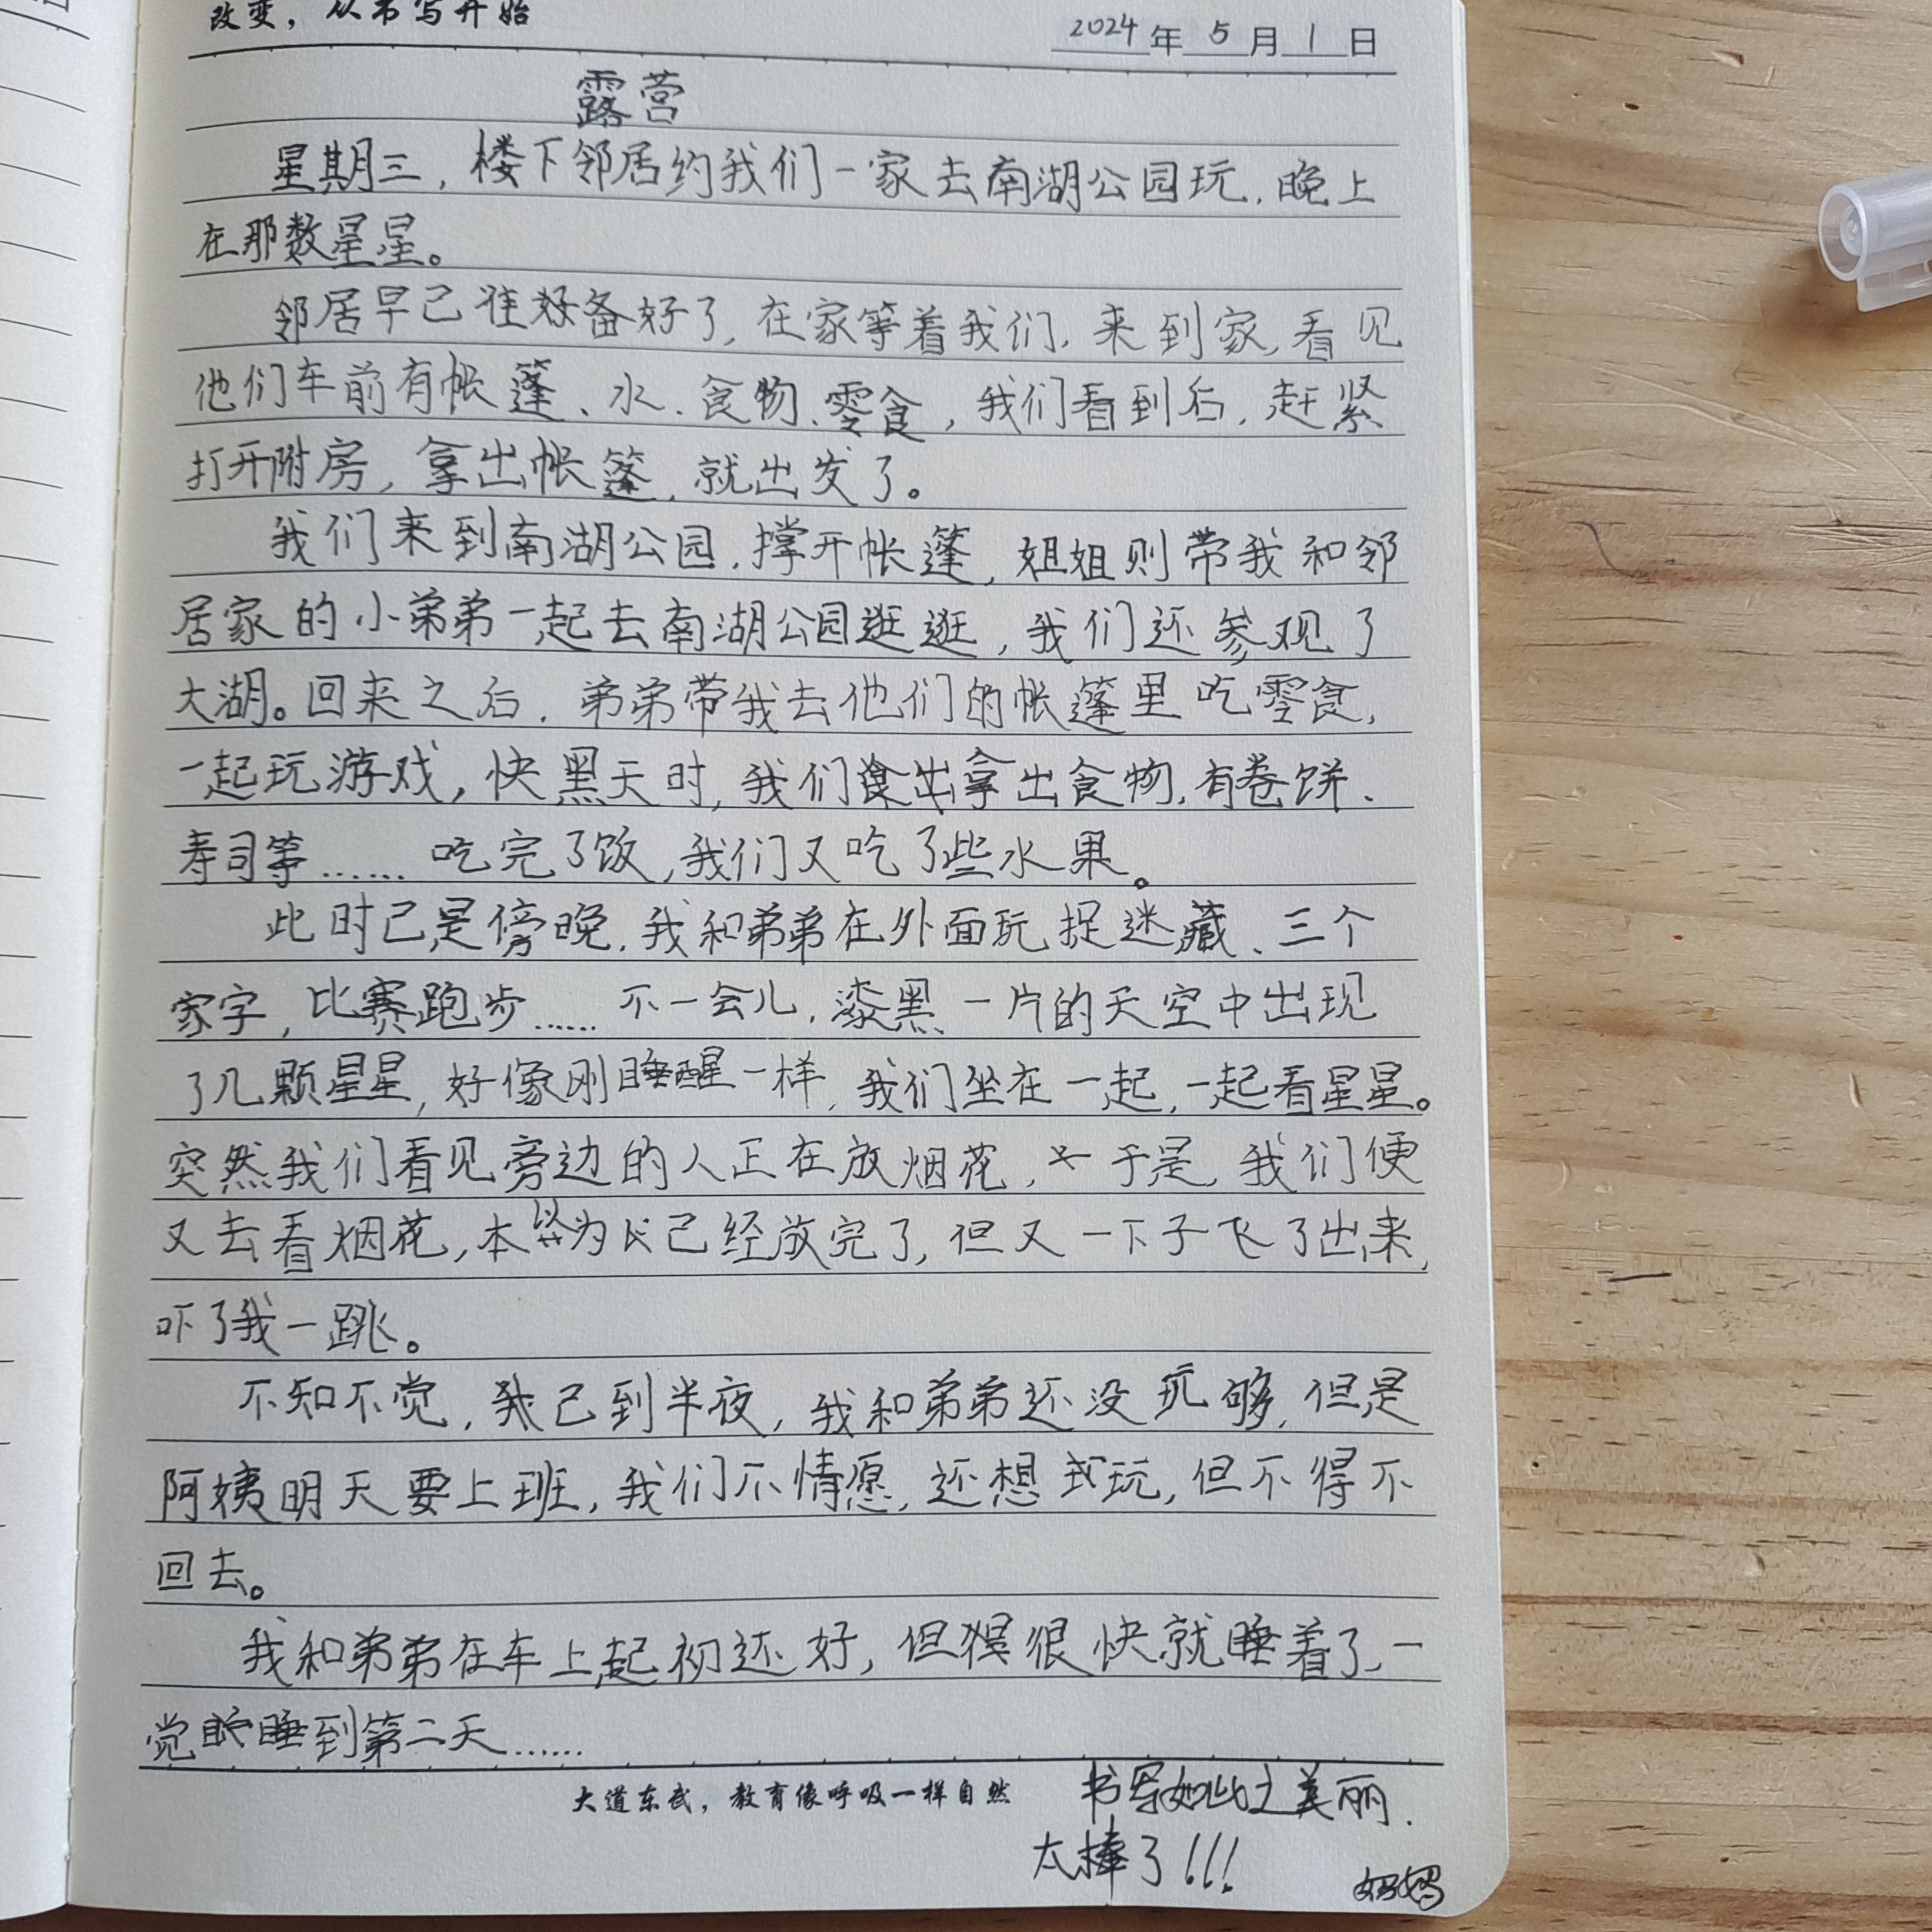 改变，从书写开始
2024年5月1日
露营
星期三，楼下邻居约我们一家去南湖公园玩，晚上
在那数星星。
邻居早已准好备好了，在家等着我们，来到家，看见
他们车前有帐篷、水、食物、零食，我们看到后，赶紧
打开附房，拿出帐篷，就出发了。
我们来到南湖公园，撑开帐篷，姐姐则带我和邻
居家的小弟弟一起去南湖公园逛逛，我们还参观了
大湖。回来之后，弟弟带我去他们的帐篷里吃零食，
一起玩游戏，快黑天时，我们食出拿出食物，有卷饼、
寿司等……吃完了饭，我们又吃了些水果。
此时已是傍晚，我和弟弟在外面玩捉迷藏、三个
家字，比赛跑步……不一会儿，漆黑一片的天空中出现
了几颗星星，好像刚睡醒一样，我们坐在一起，一起看星星。
突然我们看见旁边的人正在放烟花，于是，我们便
又去看烟花，本以为已经放完了，但又一下子飞了出来，
吓了我一跳。
不知不觉，我已到半夜，我和弟弟还没玩够，但是
阿姨明天要上班，我们不情愿，还想我玩，但不得不
回去。
我和弟弟在车上起初还好，但很很快就睡着了，一
觉睡到第二天……
大道东武，教育像呼吸一样自然
书写如此之美丽．
太棒了！！！
妈妈